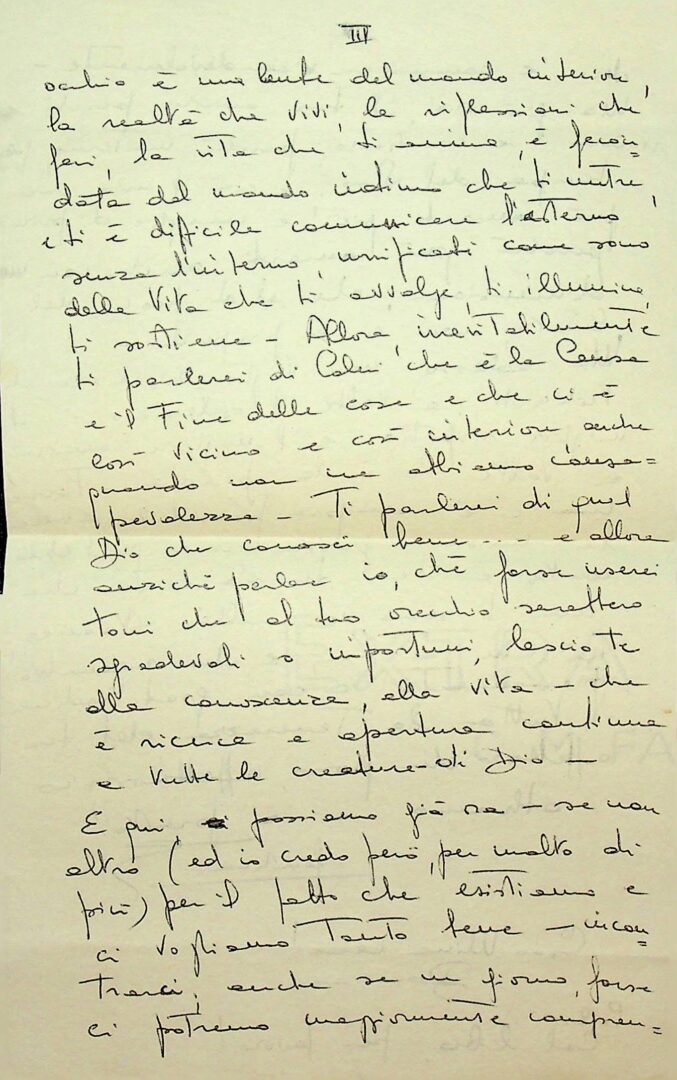 III
occhio è una lente del mondo interiore,
la realtà che vivi, le riflessioni che
fai, la vita che ti anima, è fecon-
data del mondo intimo che ti nutre,
e ti è difficile comunicare l'esterno
senza l'interno, unificati come sono
dalla Vita che ti avvolge, ti illumina,
ti sostiene - Allora, inevitabilmente
ti parlerei di Colui che è la Causa
e il Fine delle cose e che ci è
così vicino e così interiore anche
quando non ne abbiamo consa=
pevolezza - Ti parlerei di quel
Dio che conosci bene .... e allora
anziché parlare io, chè forse userei
toni che al tuo orecchio sarebbero
sgradevoli o importuni, lascio te
alla conoscenza, alla vita - che
è ricerca e apertura continua
a tutte le creature di Dio -
E qui, possiamo già ora - se non
altro (ed io credo però, per molto di
più) per il fatto che esistiamo e
ci vogliamo tanto bene - incon-
trarci, anche se un giorno, forse
ci potremo maggiormente compren=